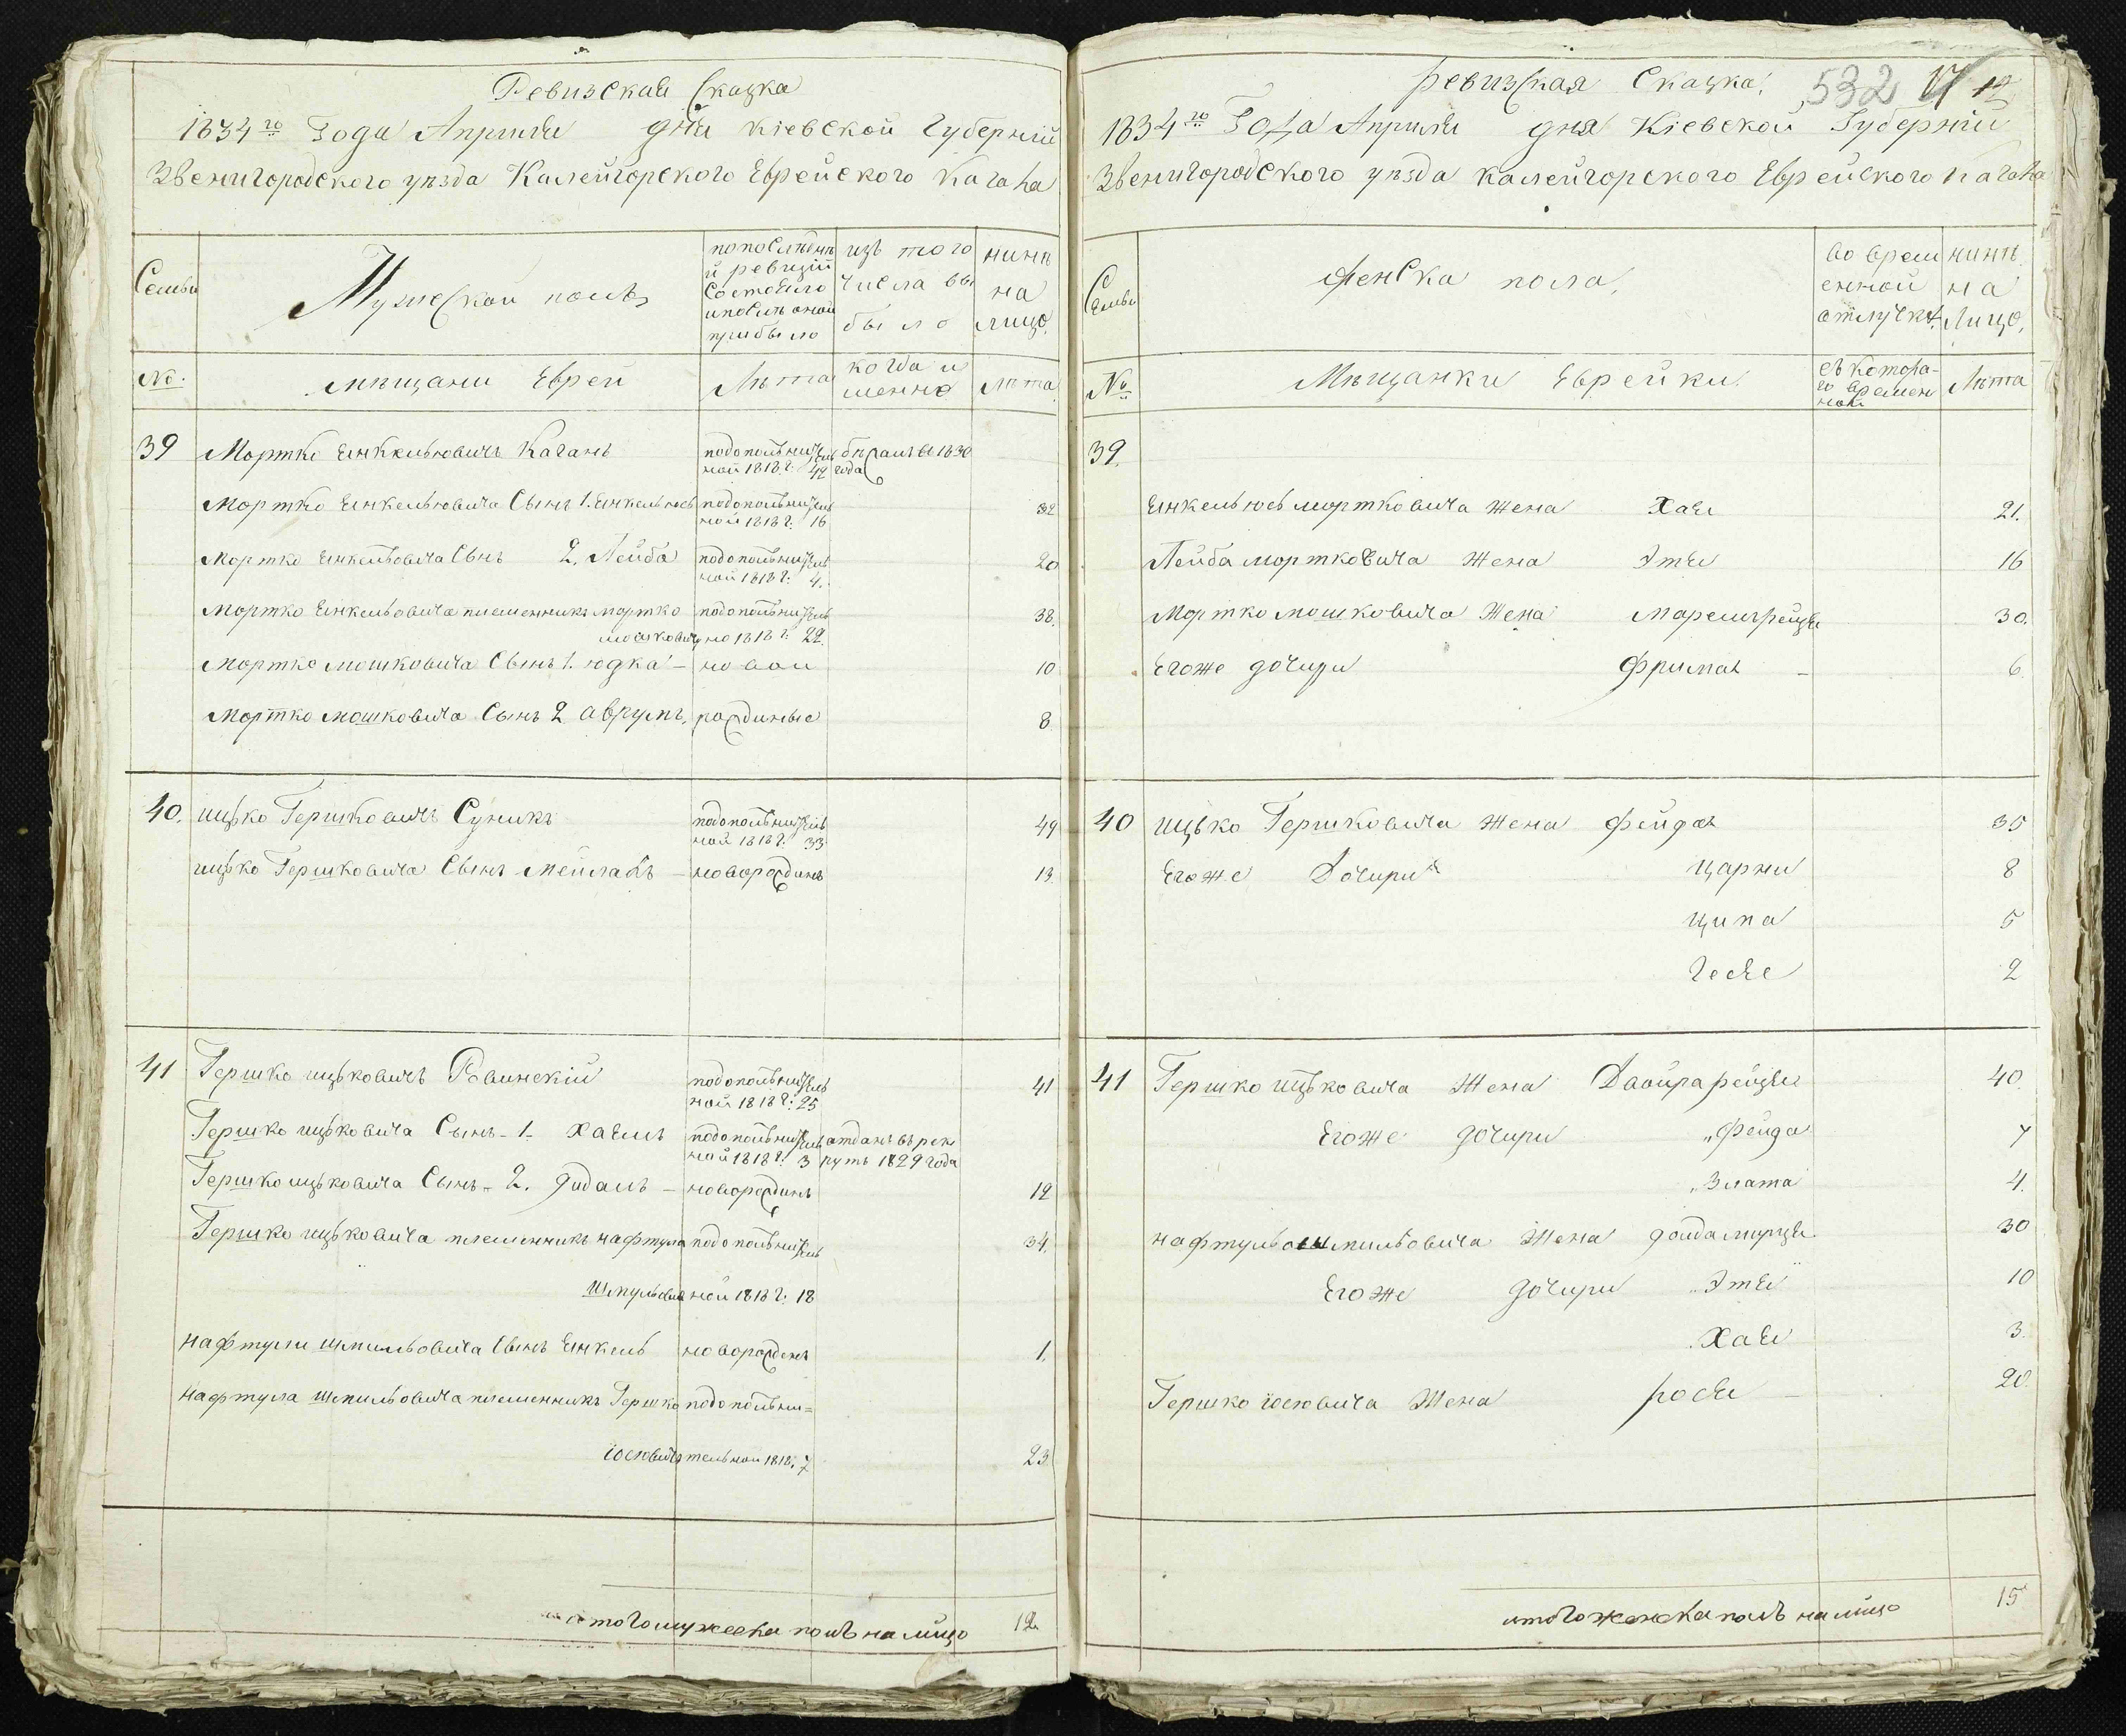 Ревизская Сказка
1834го Года Апреля дня Кіевской Губерній
Звенигородского уезда Калейгорского Еврейского Кагала
Семьи
Мужеской полъ
попоследней ревизіи состояло и после оной прибыло
изъ того числа выбыло
нинѣ на лицо
№:
мещани Евреи
Лѣта
когда и менно
лѣта
39 Мортко Енкельовичъ Каганъ
ной 1818 г: 42 года
Мортко Енкельовича Сынъ 1. Енкель юсь
ной 1818 г: 16 32
Мортко Енкельовича Сынъ 2. Лейба
ной 1818 г: 4. 20
Мортко Енкельовича племенникъ мортко
мошкович но 1818 г: 22. 38.
Мортко мошковича Сынъ 1. юдка – ново 10
Мортко мошковича Сынъ 2 аврумъ, рождиные 8
40. ицько Гершковичъ Суникъ
ной 1818 г: 33 49
ицько Гершковича Сынъ мейлахъ – новорождинъ 13.
41 Гершко ицьковичъ Ровинскій
ной 1818 г: 25 41
Гершко ицьковича Сынъ – 1 – хаимъ отданъ врек
ной 1818 г: 3 путъ 1829 года
Гершко ицьковича Сынъ – 2. – новорождинъ 12
Гершко ицьковича племенникъ нафтула
Шмульович ной 1818 г: 18 34.
нафтули шмильовича Сынъ Енкель новорожденъ 1.
нафтула шмильовича племенникъ Гершко подополни=
іосьовичъ тельной 1818: 7 23
итого мужеска полъ на лицо 12
Ревизская Сказка, 532 17
1834го Года Апреля дня Кіевской Губерніи
Звенигородского уезда калейгорского Еврейского кагала
Семьи
женска пола,
во временной отлучке,
нинѣ на Лицо,
№
Мѣщанки Еврейки
съ котораго времени
Лѣта
39.
Енкель юсь мортковича жена Хая 21.
Лейба мортковича жена Этя 16
Мортко мошковича жена 30.
Егоже дочири фрима – 6.
40 ицько Гершковича жена фейга 35
Егоже Дочири царни 8
ципа 5
2
41 Гершко ицьковича жена Двойра рейзя 40.
Егоже дочири „фейга 7
„Злата 4.
жена 30
Егоже дочири „Этя 10
„Хая 3.
Гершко іосьовича жена рося – 20.
итого женска полъ на лицо 15